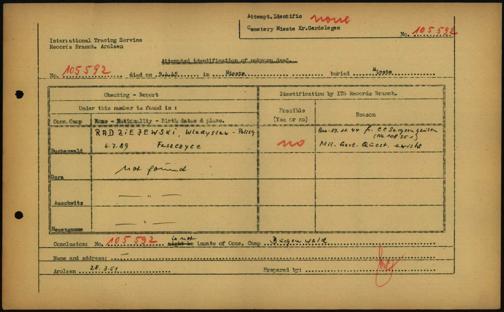 Attempt. Identific none
Cemetery Mieste Kr. Gardelegen
No. 105592
International Tracing Service
Records Branch, Arolsen
Attempted identification of unknown dead.
No. 105592 died on in Mieste buried Mieste
Checking - Report
Identification by ITS Records Branch.
Under this number is found in:
Possible (Yes or no)
Reason
Conc. Camp
Name - Nationality - Birth dates & place.
RADZIEJEWSKI, Wladyslaw - Polish
Buchenwald
no
Dora
not found
Auschwitz
- " -
Neuengamme
- " -
Conclusion: No. 105592 is not Inmate of Conc. Camp
Name and address: -
Arolsen
Prepared by: